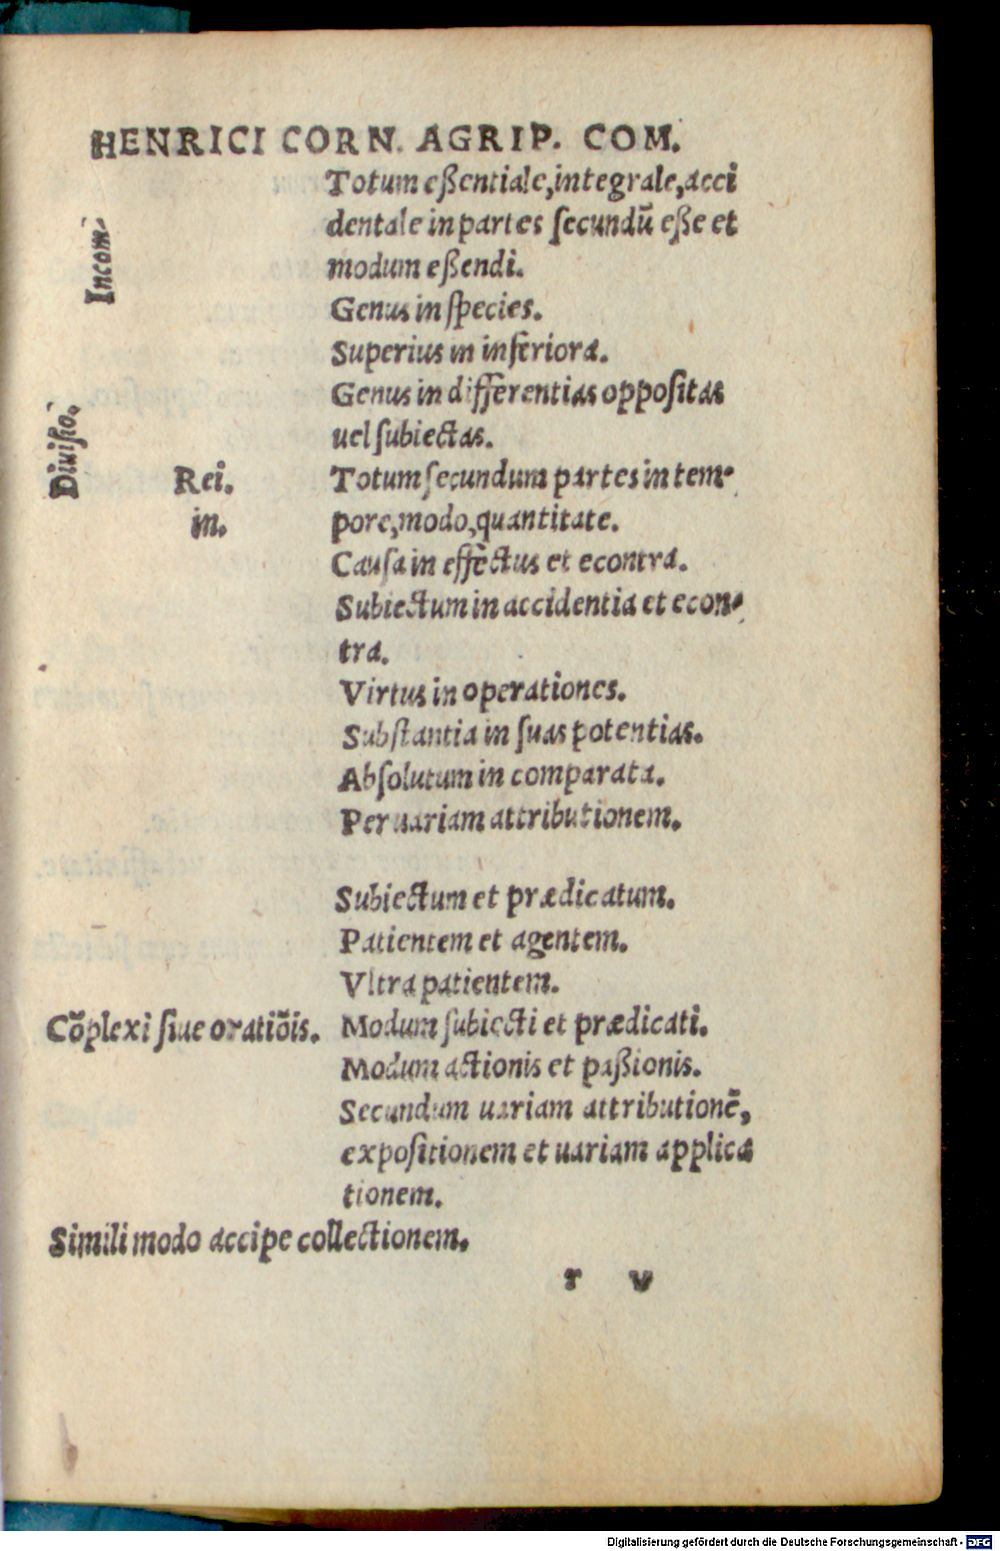 HENRICI CORN. AGRIP. COM.
Totum eßentiale, integrale, acci
dentale in partes secundũ eße et
modum eßendi.
Incom-
Genus in species.
Superius in inferiora.
Genus in differentias oppositas
uel subiectas.
Diuisio.
Rei.
in.
Totum secundum partes in tem-
pore, modo, quantitate.
Causa in effectus et econtra.
Subiectum in accidentia et econ-
tra.
Virtus in operationes.
Substantia in suas potentias.
Absolutum in comparata.
Per uariam attributionem.
Subiectum et prædicatum.
Patientem et agentem.
Vltra patientem.
Cõplexi siue oratiõis.
Modum subiecti et prædicati.
Modum actionis et paßionis.
Secundum uariam attributionẽ,
expositionem et uariam applica
tionem.
Simili modo accipe collectionem.
r v
Digitalisierung gefördert durch die Deutsche Forschungsgemeinschaft - DFG